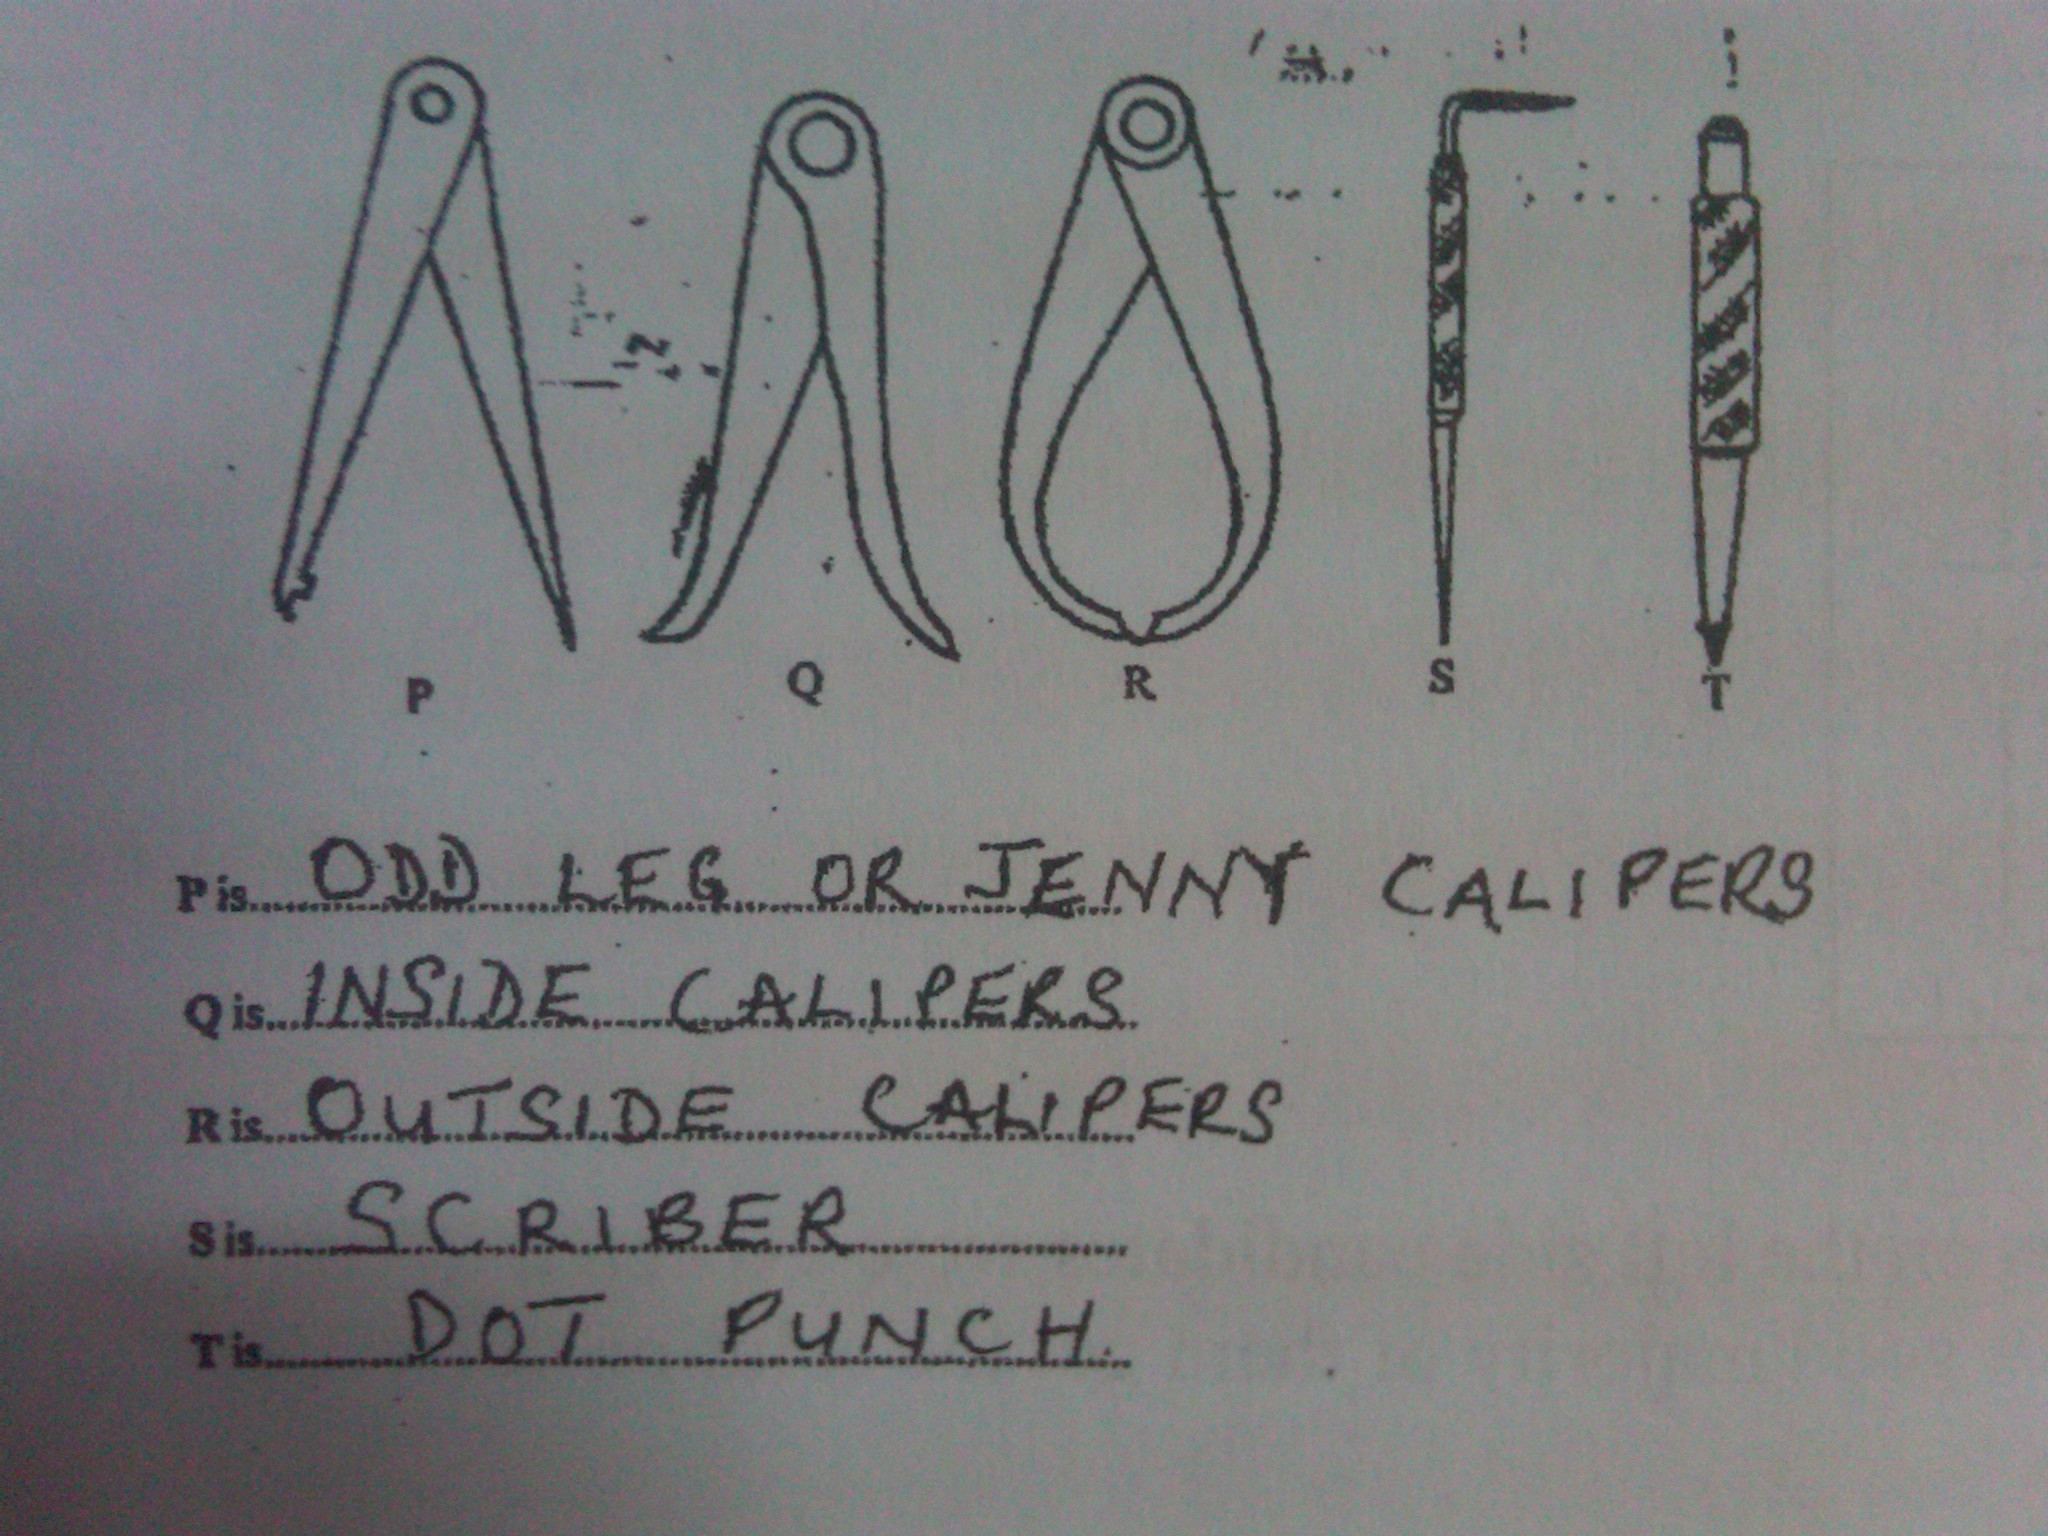 P Q R S T
P is ODD LEG OR JENNY CALIPERS
Q is INSIDE CALIPERS
R is OUTSIDE CALIPERS
S is SCRIBER
T is DOT PUNCH.